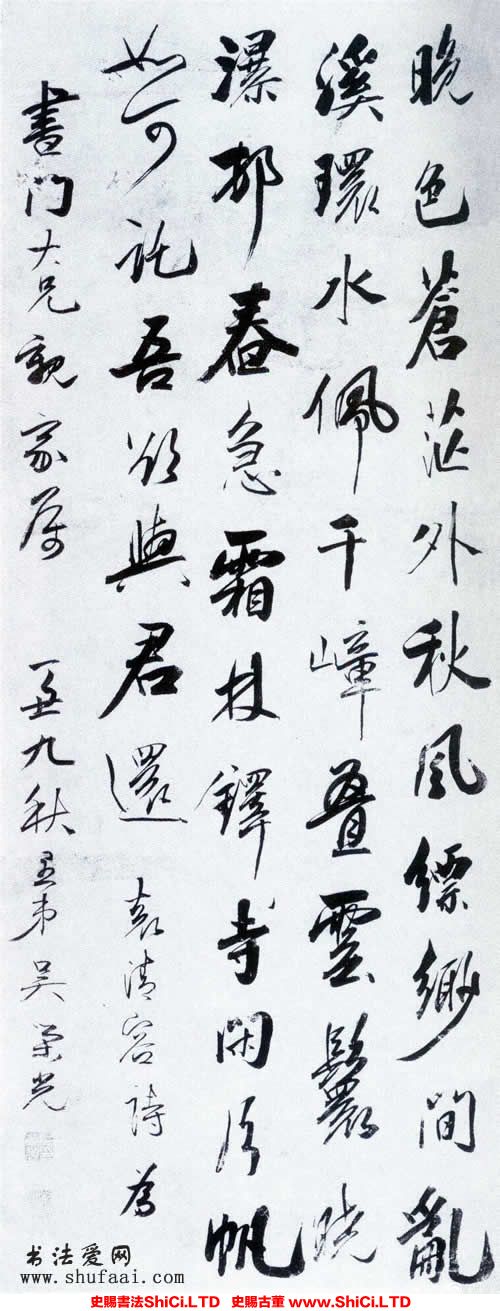 晚色蒼茫外秋風縹緲間亂
溪環水佩千嶂疊雲鬟曉
瀑郁春急霜林鐸寺閑片帆
如可託吾欲與君還 袁清容詩 為
書門大兄親家属 丞九秋 弟吳榮光
书法爱网
www.shufaai.com
史賜書法ShiCi.LTD 史賜古董 www.ShiCi.LTD